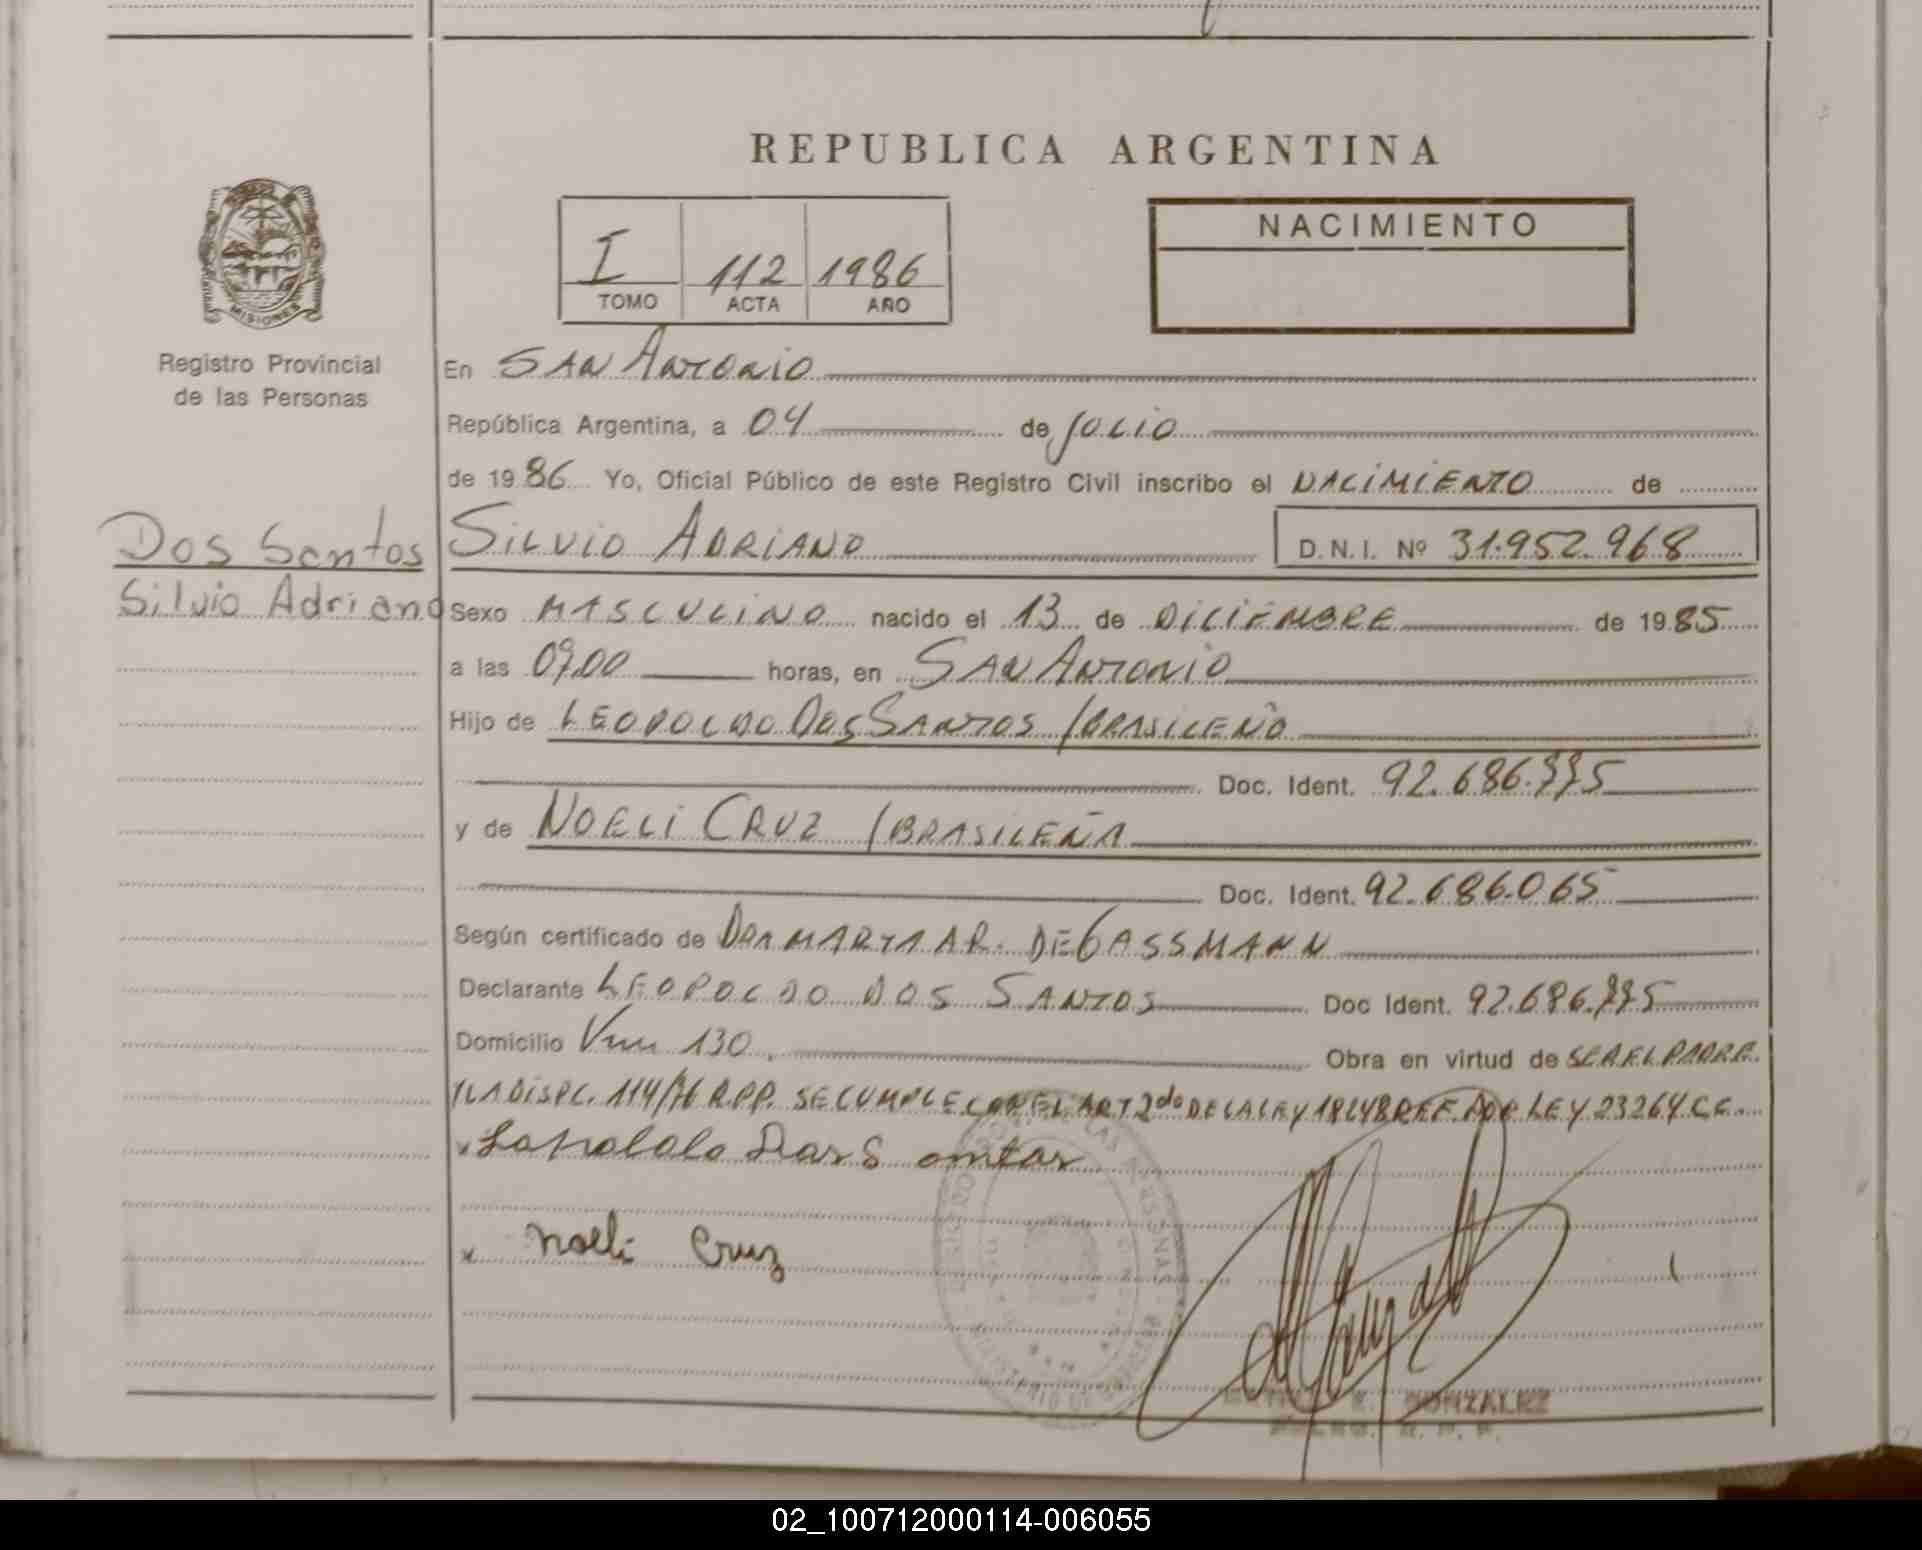 REPUBLICA ARGENTINA
I 112 1986
TOMO ACTA AÑO
NACIMIENTO
MISIONES
Registro Provincial
de las Personas
En SAN ANTONIO
República Argentina, a 04 de JULIO
de 1986 Yo, Oficial Público de este Registro Civil inscribo el NACIMIENTO de
Dos Santos
Silvio Adriano
SILVIO ADRIANO D.N.I. Nº 31.952.968
Sexo MASCULINO nacido el 13 de DICIEMBRE de 1985
a las 09,00 horas, en SAN ANTONIO
Hijo de LEOPOLDO DOS SANTOS / BRASILEÑO
Doc. Ident. 92.686.775
y de NOELI CRUZ / BRASILEÑA
Doc. Ident. 92.686.065
Según certificado de DRA MARTA A R. DE GASSMANN
Declarante LEOPOLDO DOS SANTOS Doc Ident. 92.686.775
Domicilio Km 130 Obra en virtud de SER EL PADRE
Y LA DISPC. 114/76 R.P.P. SE CUMPLE CON EL ART 2do DE LA LEY 18248 REF. POR LEY 23264 C.C.
x Noeli Cruz
GONZALEZ
R. P. P.
02_100712000114-006055